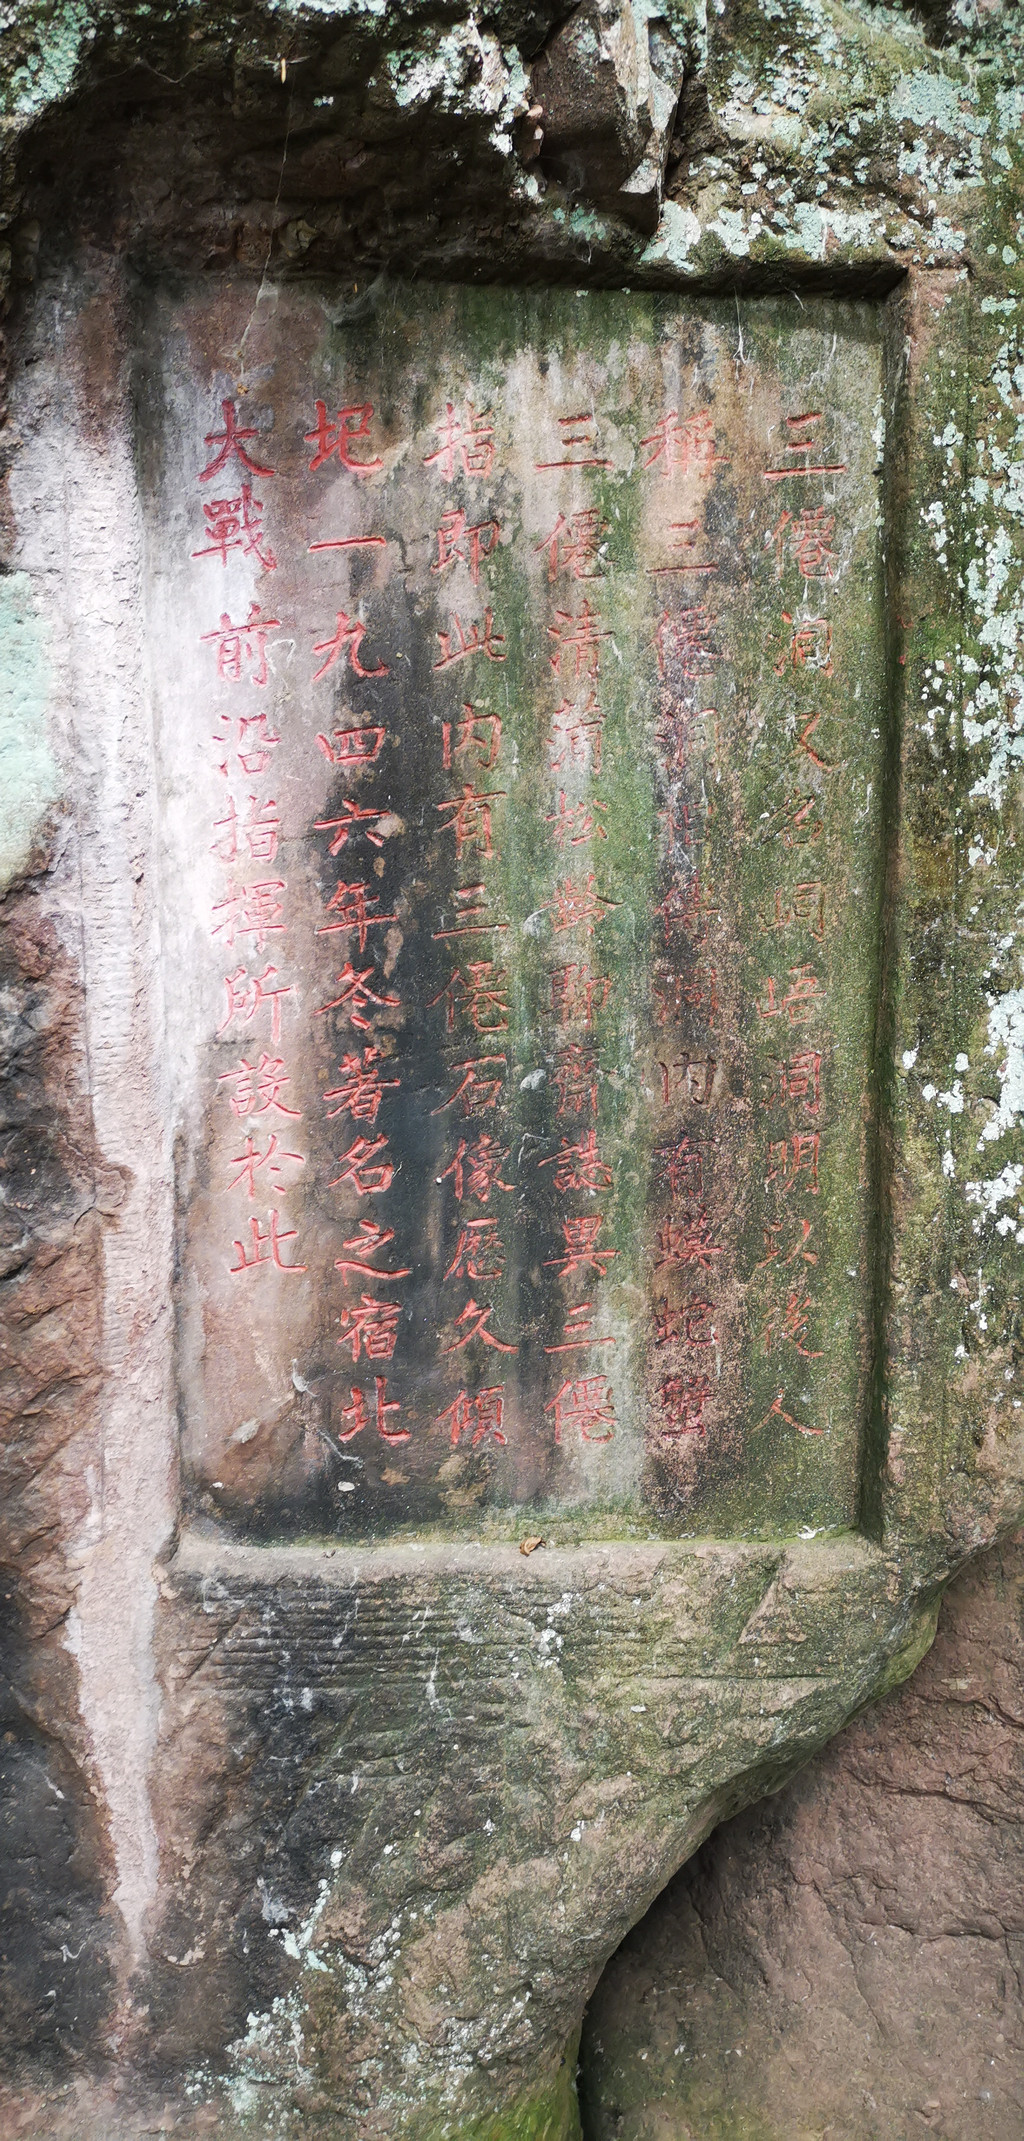 三僊洞又名峒峿洞明以後人
稱三僊洞相傳洞内有蟒蛇蟹
三僊清蒲松齡聊齋誌異三僊
指即此内有三僊石像歷久傾
圮一九四六年冬著名之宿北
大戰前沿指揮所設於此